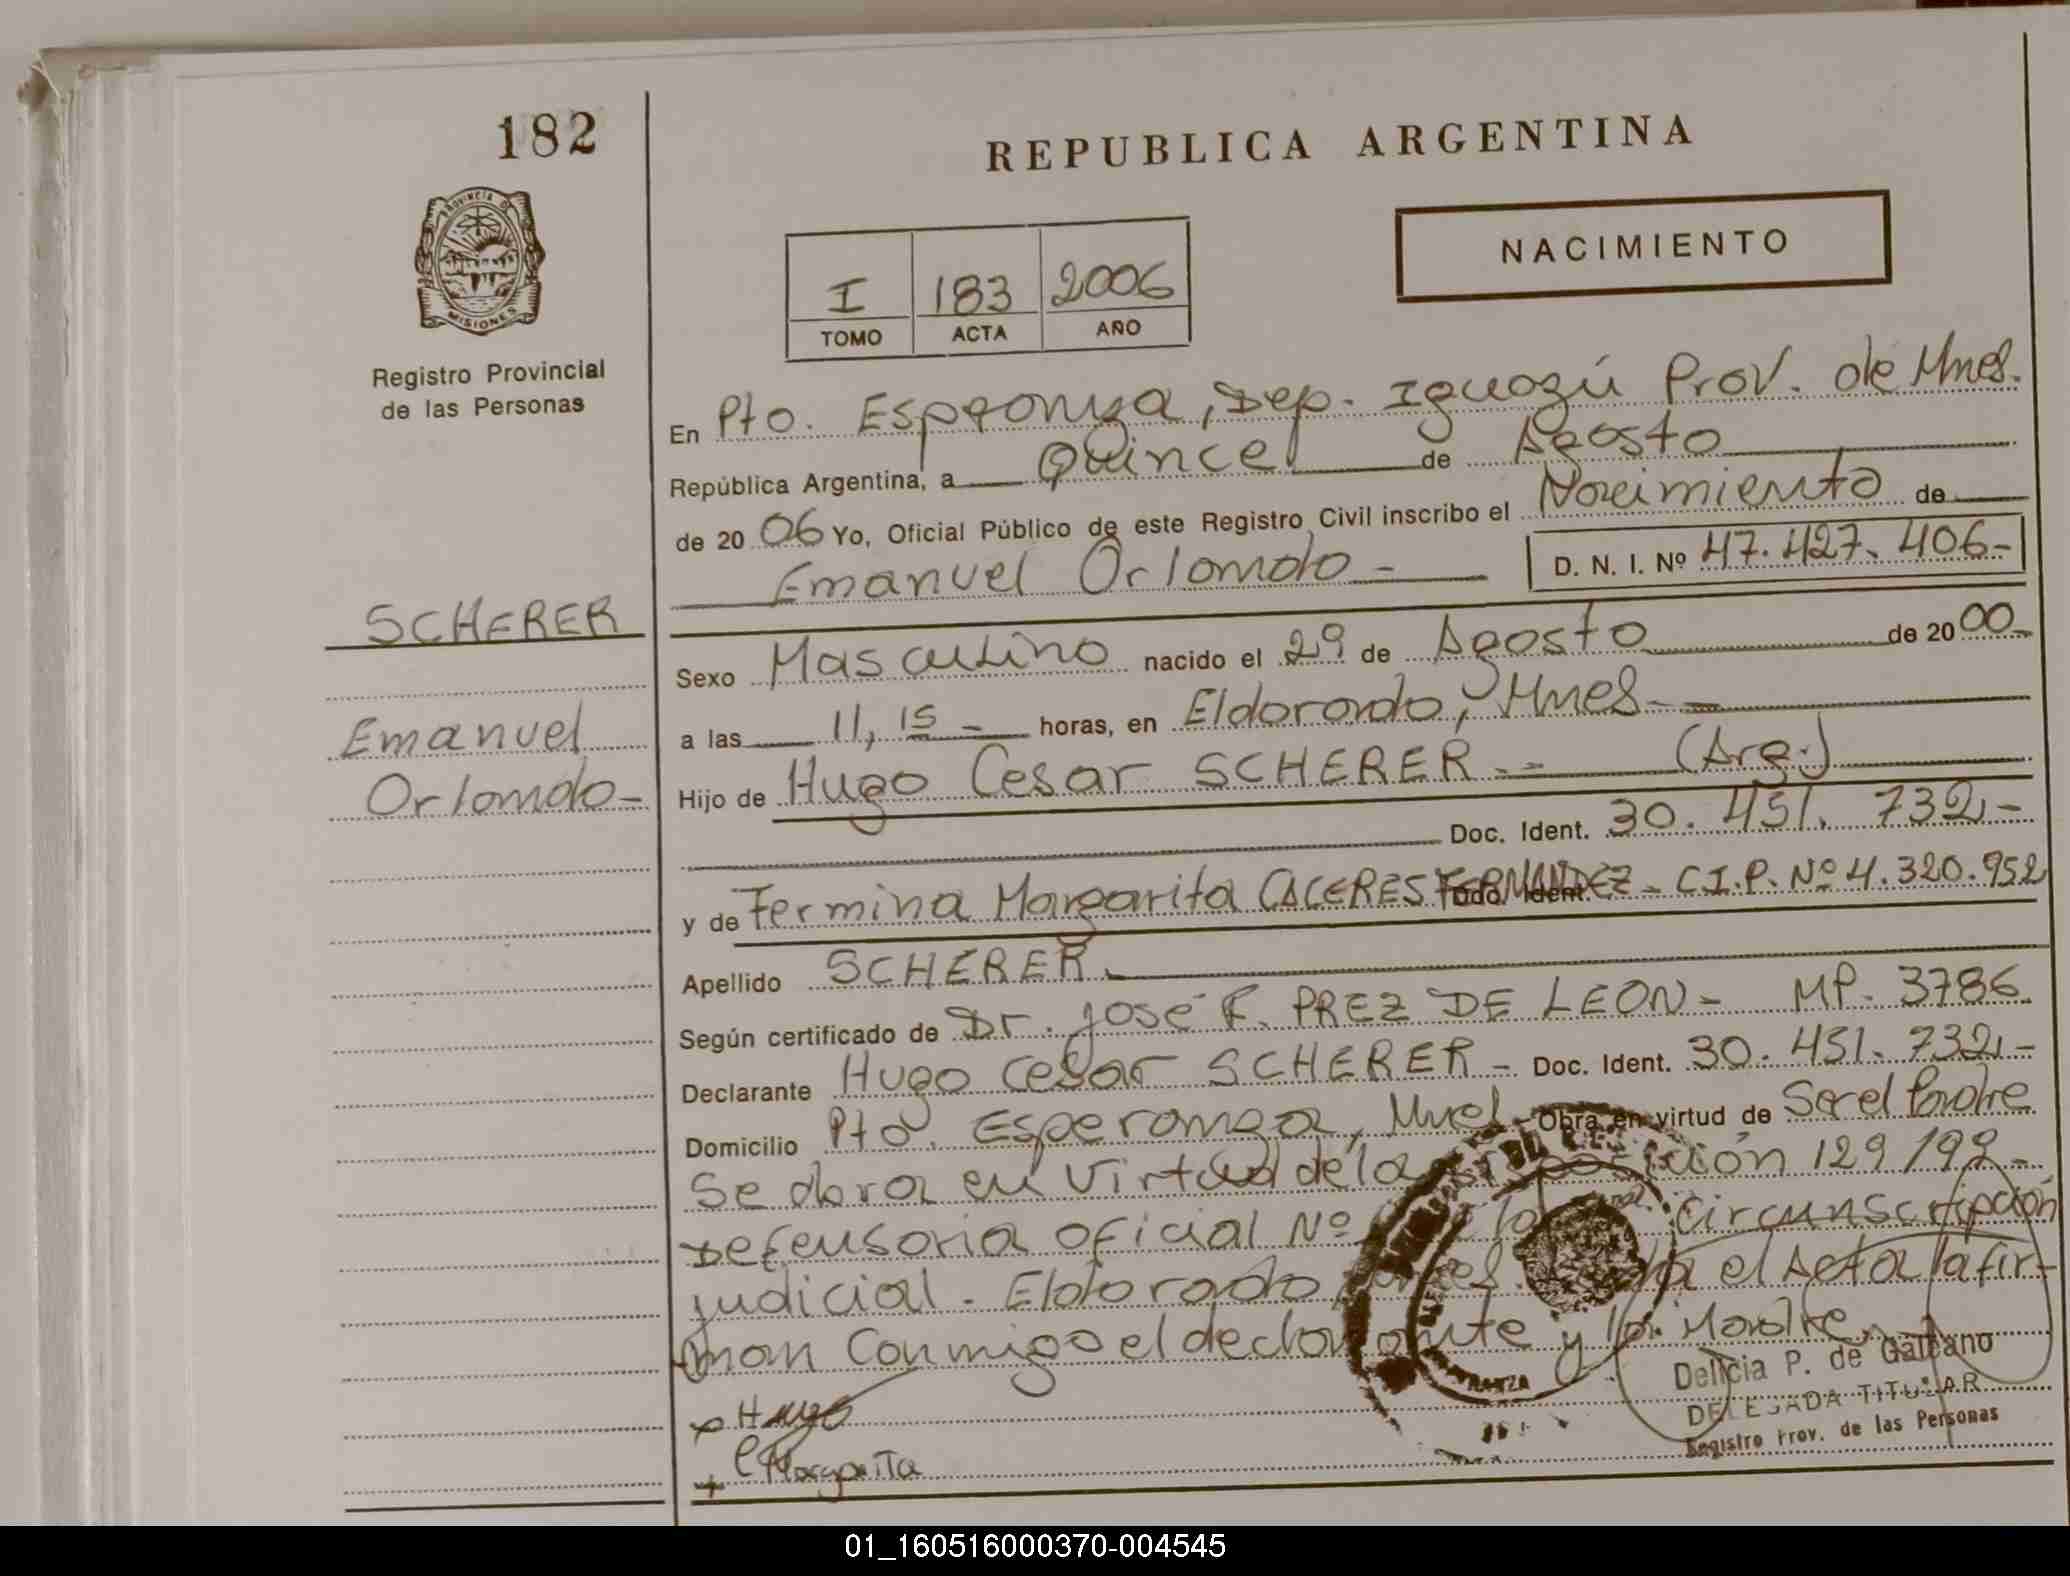 182
REPUBLICA ARGENTINA
PROVINCIA DE
MISIONES
Registro Provincial
de las Personas
I 183 2006
TOMO ACTA AÑO
NACIMIENTO
En Pto. Esperanza, Dep. Iguazú Prov. de Mnes.
República Argentina, a Quince de Agosto
de 20 06 Yo, Oficial Público de este Registro Civil inscribo el Nacimiento de
Emanuel Orlando - D. N. I. Nº 47.427.406-
SCHERER
Emanuel
Orlando-
Sexo Masculino nacido el 29 de Agosto de 20 00-
a las 11,15 - horas, en Eldorado, Mnes-
Hijo de Hugo Cesar SCHERER.- (Arg.)
Doc. Ident. 30.451.732,-
y de Fermina Margarita CACERES FERNANDEZ - C.I.P. Nº 4.320.952
Apellido SCHERER.
Según certificado de Dr. José F. PREZ DE LEON - MP. 3786.
Declarante Hugo Cesar SCHERER - Doc. Ident. 30.451.732,-
Domicilio Pto. Esperanza, Mnes Obra en virtud de Ser el Padre
Se labra en Virtud de la 129/99-
Defensoria Oficial Nº Circunscripción
judicial. Eldorado el Acta la fir-
man Conmigo el declarante y la Madre.
Hugo
Margarita
Delicia P. de Galeano
DELEGADA TITULAR
Registro Prov. de las Personas
01_160516000370-004545